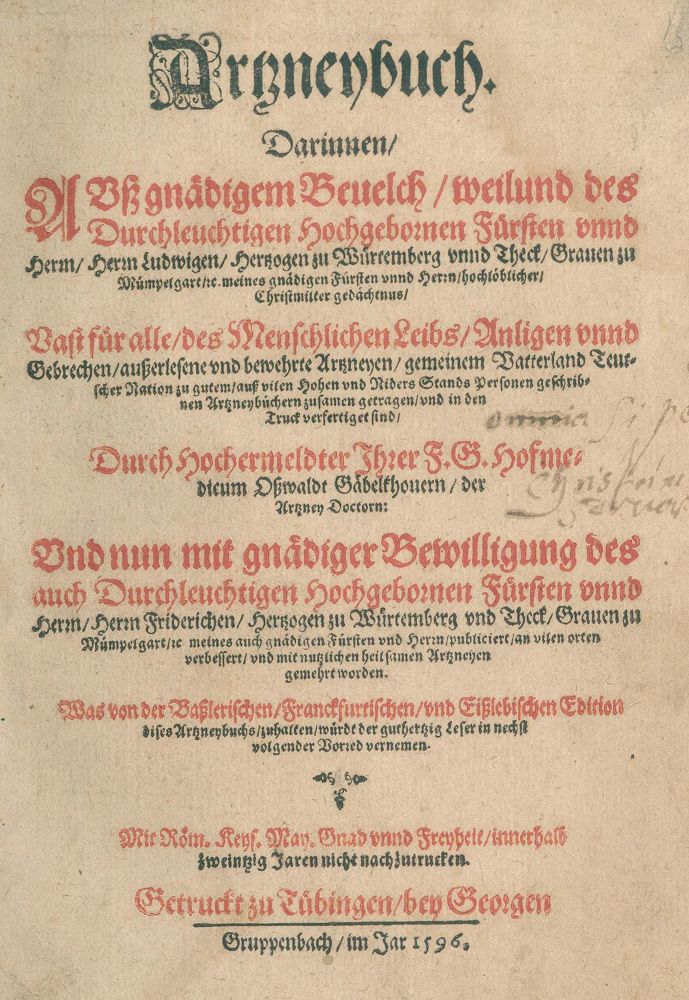 Artzneybuch.
Darinnen/
AVß gnädigem Beuelch/weilund des
Durchleuchtigen Hochgebornen Fürsten vnnd
Herrn/Herrn Ludwigen/Hertzogen zu Würtemberg vnnd Theck/Grauen zu
Mümpelgart/ꝛc. meines gnädigen Fürsten vnnd Herrn/hochlöblicher/
Christmilter gedächtnus/
Vast für alle/des Menschlichen Leibs/Anligen vnnd
Gebrechen/außerlesene vnd bewehrte Artzneyen/gemeinem Vatterland Teut-
scher Nation zu gutem/auß vilen Hohen vnd Niders Stands Personen geschrib-
nen Artzneybüchern zusamen getragen/vnd in den
Truck verfertiget sind/
omnia si pe
Durch Hochermeldter Jhrer F.G. Hofme-
dicum Oßwaldt Gäbelkhouern/der
Artzney Doctorn:
Vnd nun mit gnädiger Bewilligung des
auch Durchleuchtigen Hochgebornen Fürsten vnnd
Herrn/Herrn Friderichen/Hertzogen zu Würtemberg vnd Theck/Grauen zu
Mümpelgart/ꝛc meines auch gnädigen Fürsten vnd Herrn/publiciert/an vilen orten
verbessert/vnd mit nutzlichen heilsamen Artzneyen
gemehrt worden.
Was von der Baßlerischen/Franckfurtischen/vnd Eißlebischen Edition
dises Artzneybuchs/zuhalten/würdt der guthertzig Leser in nechst
volgender Vorred vernemen.
Mit Röm. Keys. May. Gnad vnnd Freyheit/innerhalb
zweintzig Jaren nicht nachzutrucken.
Getruckt zu Tübingen/bey Georgen
Gruppenbach/im Jar 1596.